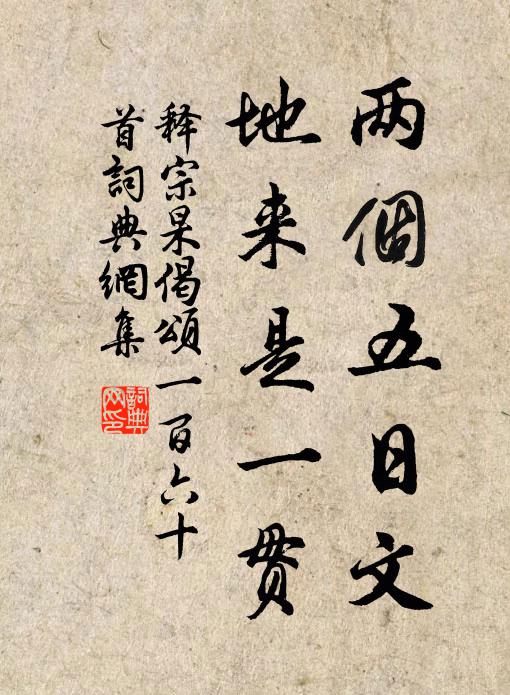 两個五日文
地来是一贯
释宗杲偈頌一百六十
首詞典網集
詞典
网印